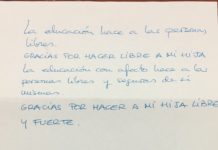 La educación hace a las personas
libres.
GRACIAS POR HACER LIBRE A MI HIJA
La educación con afecto hace a las
personas libres y seguras de sí
mismas
GRACIAS POR HACER A MI HIJA LIBRE
Y FUERTE.